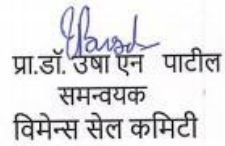 प्रा.डॉ. उषा एन पाटील
समन्वयक
विमेन्स सेल कमिटी